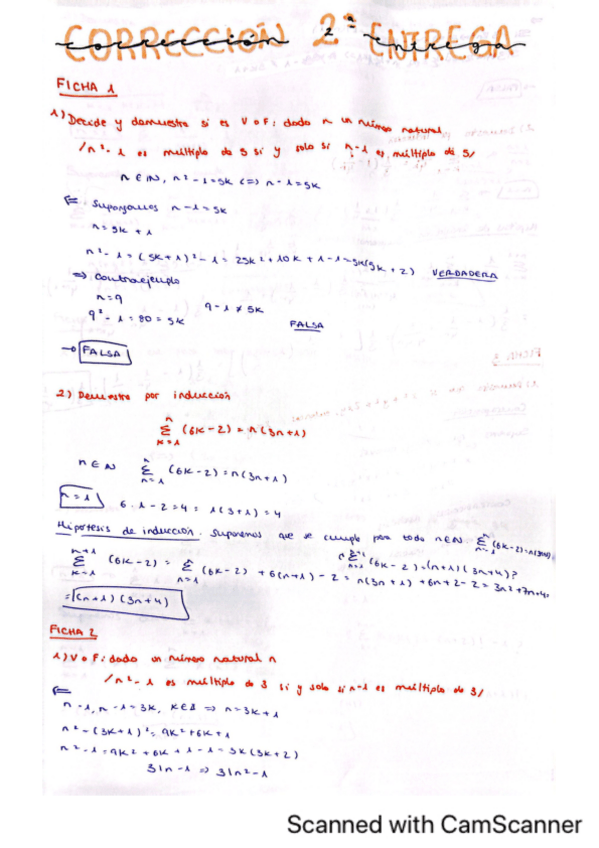 CORRECCIÓN 2ª ENTREGA
FICHA 1
1) Decide y demuestra si es V o F: dado n un número natural
/n² - 1 es múltiplo de 5 si y solo si n-1 es múltiplo de 5/
n ∈ ℕ, n² - 1 = 5k <=> n - 1 = 5k
⇐ Supongamos n - 1 = 5k
n = 5k + 1
n² - 1 = (5k+1)² - 1 = 25k² + 10k + 1 - 1 = 5k(5k + 2) VERDADERA
⇒ Contraejemplo
n = 9
9² - 1 = 80 = 5k 9 - 1 ≠ 5k FALSA
→ FALSA
2) Demuestra por inducción
n Σ k=1 (6k - 2) = n(3n+1)
n ∈ ℕ n Σ n=1 (6k - 2) = n(3n+1)
n = 1 6·1 - 2 = 4 = 1(3+1) = 4
Hipótesis de inducción. Suponemos que se cumple para todo n∈ℕ n Σ n=1 (6k-2) = n(3n+1).
¿ n+1 Σ n=1 (6k - 2) = (n+1)(3n+4)?
n+1 Σ k=1 (6k - 2) = n Σ n=1 (6k - 2) + 6(n+1) - 2 = n(3n+1) + 6n + 2 - 2 = 3n² + 7n + 4 =
= (n+1)(3n+4)
FICHA 2
1) V o F: dado un número natural n
/n² - 1 es múltiplo de 3 si y solo si n-1 es múltiplo de 3/
⇐
n - 1, n - 1 = 3k, k∈ℤ ⇒ n = 3k + 1
n² = (3k+1)² = 9k² + 6k + 1
n² - 1 = 9k² + 6k + 1 - 1 = 3k(3k+2)
3|n - 1 ⇒ 3|n² - 1
Scanned with CamScanner